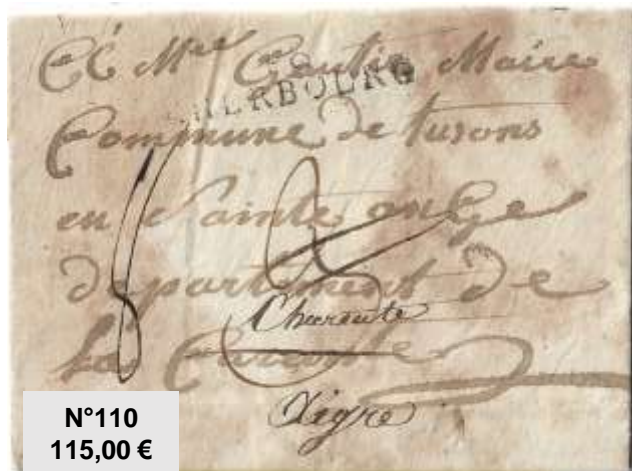 A Mr Gautier Maire
CHERBOURG
Commune de tusons
en Sainte onge
departement de
Charente
la Charente
Aigre
N°110
115,00 €